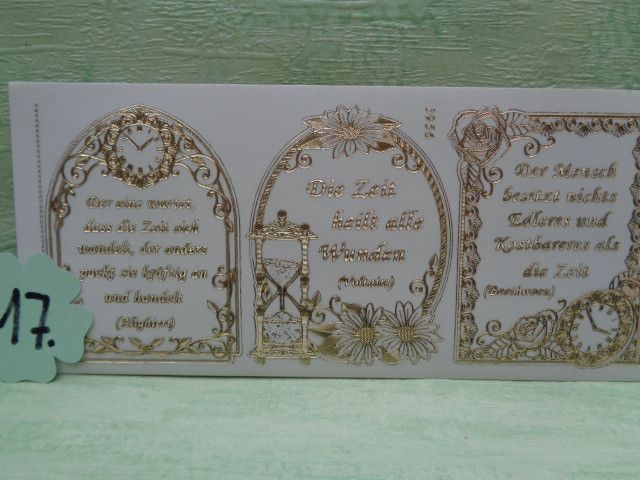 17.
Der eine wartet,
dass die Zeit sich
wandelt, der andere
packt sie kräftig an
und handelt
(Alighieri)
Die Zeit
heilt alle
Wunden
(Voltaire)
Der Mensch
besitzt nichts
Edleres und
Kostbareres als
die Zeit
(Beethoven)